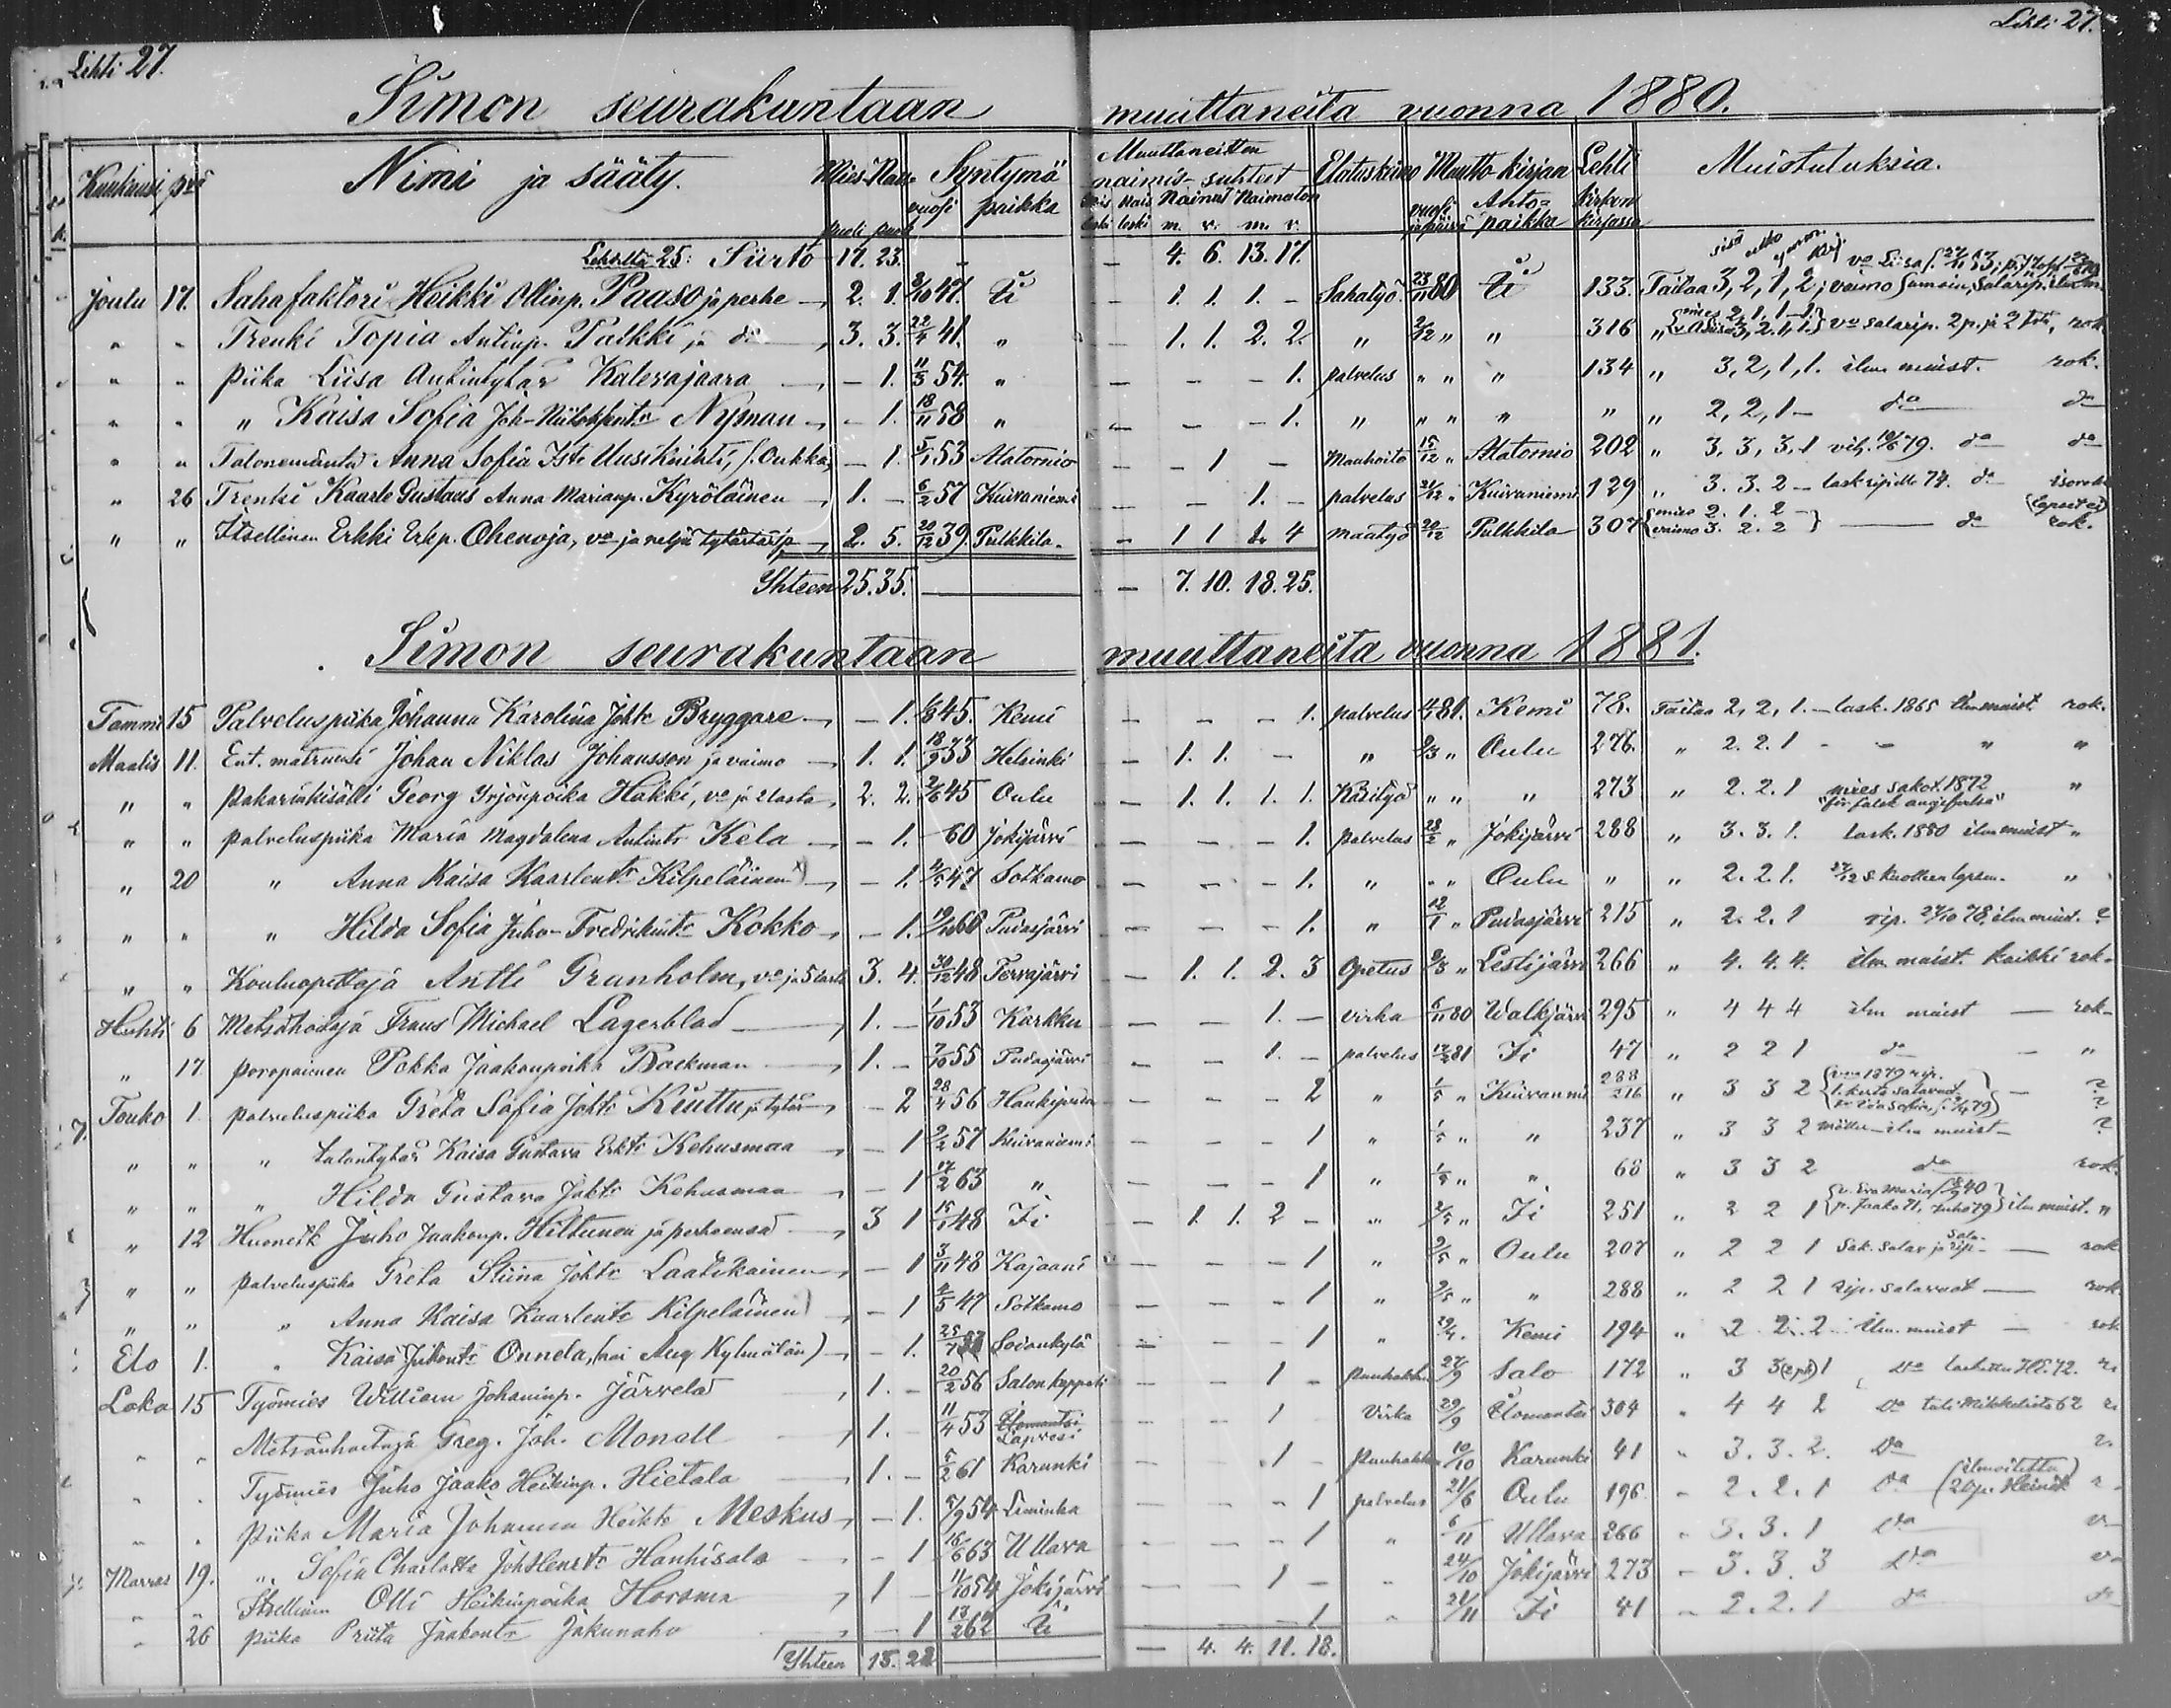 Lehti 27. Lehti 27.
Simon seurakuntaan muuttaneita vuonna 1880.
Kuukausi pvä Nimi ja sääty. Mies- Nais- puoli puoli Syntymä vuosi paikka Muuttaneitten naimis-suhteet Mies leski Nais leski Nainut m. v. Naimaton m. v. Elatuskeino Muutto-kirjan vuosi ja päivä Anto-paikka Lehti kirkon kirjassa Muistutuksia.
Lehdeltä 25: Siirto 17. 23. - - 4. 6. 13. 17.
Joulu 17. Sahafaktori Heikki Ollinp. Paaso ja perhe 2. 1. 2/10 47. Ii - 1. 1. 1. - Sahatyö 23/11 80 Ii 133. Taitaa 3, 2, 1, 2; vaimo samoin,
" " Trenki Topia Antinp. Palkki ja do 3. 3. 22/4 41. " - 1. 1. 2. 2. " 2/12 " " 316 " mies 2, 1, 1 va salarip. 2 p. ja 2 rok.
" " Piika Liisa Antintytär Kalerajaara - 1. 11/3 54. " - - - 1. palvelus " " " 134 " 3, 2, 1, 1. ilm. muist. rok.
" " " Kaisa Sofia Joh- Nyman - 1. 18/11 58 " - - - 1. " " " " " " 2, 2, 1 - do do
" " Talonemäntä Anna Sofia Usikuihti, s. Oukka - 1. 5/1 53 Alatornio - - 1 - Maanhoito 15/12 " Alatornio 202 " 3, 3, 3, 1 vih. 79. do do
" 26 Trenki Kaarle Gustaus Anna Marianp. Kyröläinen 1. - 6/2 57 Kuivaniemi - - 1. - palvelus 21/12 " Kuivaniemi 129 " 3. 3. 2 - lask. ripille 74. do
" " Itsellinen Erkki Erkp. Ohenoja, va ja neljä tytärtä 2. 5. 20/12 39. Pulkkila. - 1 1 1. 4 maatyö 20/12 Pulkkila 307 mies 2. 1. 2 - vaimo 3. 2. 2 do rok.
Yhteen 25. 35. - 7. 10. 18. 25.
Simon seurakuntaan muuttaneita vuonna 1881.
Tammi 15 Palveluspiika Johanna Karolina Joht. Bryggare - 1. 45. Kemi - - - 1. palvelus 81. Kemi 78. Taitaa 2, 2, 1. - lask. 1865 ilm. muist. rok.
Maalis 11. Ent. matruusi Johan Niklas Johansson ja vaimo 1. 1. 18/9 33 Helsinki - 1. 1. - " 2/3 " Oulu 276. " 2. 2. 1 - - " "
" " Pakarinkisälli Georg Yrjönpoika Hakki, va ja 2 lasta 2. 2. 2/6 45 Oulu - 1. 1. 1. 1. Käsityö " " " 273 " 2. 2. 1 mies sakot. 1872 "för falsk angifvelse" "
" " palveluspiika Maria Magdalena Antintr Kela - 1. - 60 Jokijärvi - - - 1. palvelus 28/2 " Jokijärvi 288 " 3. 3. 1. lask. 1880 ilm. muist "
" 20 " Anna Kaisa Kaarlentr Kilpeläinen - 1. 2/5 47 Sotkamo - - - 1. " " " Oulu " " 2. 2. 1. "
" " " Hilda Sofia Juho-Fredrikintr Kokko - 1. 19/ 60 Pudasjärvi - - - 1. " 12/1 " Pudasjärvi 215 " 2. 2. 1 rip. 27/10 78, ilm. muist. ?
" " Kouluopettaja Antti Granholm, va ja 5 lasta 3. 4. 30/12 48 Terväjärvi - 1. 1. 2. 3 Opetus 9/3 " Lestijärvi 266 " 4. 4. 4. ilm. muist. kaikki rok.
Huhti 6 Metsähoitaja Frans Michael Lagerblad 1. - 1/10 53 Karkku - - 1. - virka 6/11 80 Walkjärvi 295 " 4 4 4 ilm muist - rok.
" 17. Poropaimen Pekka Jaakonpoika Backman 1. - 7/10 55 Pudasjärvi - - 1. - palvelus 17/2 81 Ii 47 " 2 2 1 do - "
Touko 1. palveluspiika Greta Sofia Joht. Kiuttu ja tytär - 2 28/4 56 Haukipudas - - - 2 " 1/5 " Kuivaniemi 288/216 " 3 3 2 vna 1879 rip. 1. kerta salavuot. - ?
" " " talontytär Kaisa Gustava Erkts Kehusmaa - 1 9/2 57 Kuivaniemi - - - 1 " 1/5 " " 237 " 3 3 2 ilm muist - ?
" " " Hilda Gustava Jakts Kehusmaa - 1 17/2 63 " - - - 1 " 1/5 " " 68 " 3 3 2 do rok.
" 12 Juho Jaakonp. Hiltunen ja perheensä 3 1 15/ 48 Ii - 1. 1. 2 - " 2/5 " Ii 251 " 2 2 1 v. Eva Maria 40 p. Jaako 71, Juho 79 ilm muist. "
" " palveluspiika Greta Stiina Johts Laatikainen - 1 3/11 48 Kajaani - - - 1 " 2/5 " Oulu 207 " 2 2 1 Sak. salav. ja rip. - rok
" " " Anna Kaisa Kaarlentr Kilpeläinen - 1 2/5 47 Sotkamo - - - 1 " 2/5 " " 288 " 2 2 1 rip. salavuot - rok
Elo 1. " Kaisa Juhontr Onnela, (nai Aug Kylmälän) - 1. 25/7 Sodankylä - - - 1 " 29/4. Kemi 194 " 2 2. 2 ilm. muist - rok
Loka 15 Työmies William Johaninp. Järvelä 1. - 20/2 56 Salon kappeli - - 1 - Puuhakk. 27/9 Salo 172 " 3 3 1 Da
" " Metsänhoitaja Greg. Joh. Monell 1. - 11/4 53 Ilomantsi - - 1 Virka 29/9 Ilomantsi 304 " 4 4 2 Da
" " Työmies Juho Jaako Heikinp. Hietala 1. - 5/2 61 Karunki - - 1 - Puuhakk. 10/10 Karunki 41 " 3. 3. 2. Da
" " Piika Maria Johanna Heikts Meskus - 1. 5/9 54 Liminka - - - 1 palvelus 21/6 Oulu 196 " 2. 2. 1 Da
" " " Sofia Charlotta Hanhisalo - 1 16/6 63 Ullava - - - 1 " 6/11 Ullava 266 " 3. 3. 1 Da
Marras 19. Itsellinen Olli Heikinpoika Horsma 1 - 11/10 54 Jokijärvi - - 1 - " 24/10 Jokijärvi 273 - 3. 3. 3 Da
" 26 piika Priita Jaakontr Jakunaho - 1 13/2 62 Ii - - - 1 " 21/11 Ii 41 - 2. 2. 1 do do
Yhteen 15. 22 - 4. 4. 11. 18.